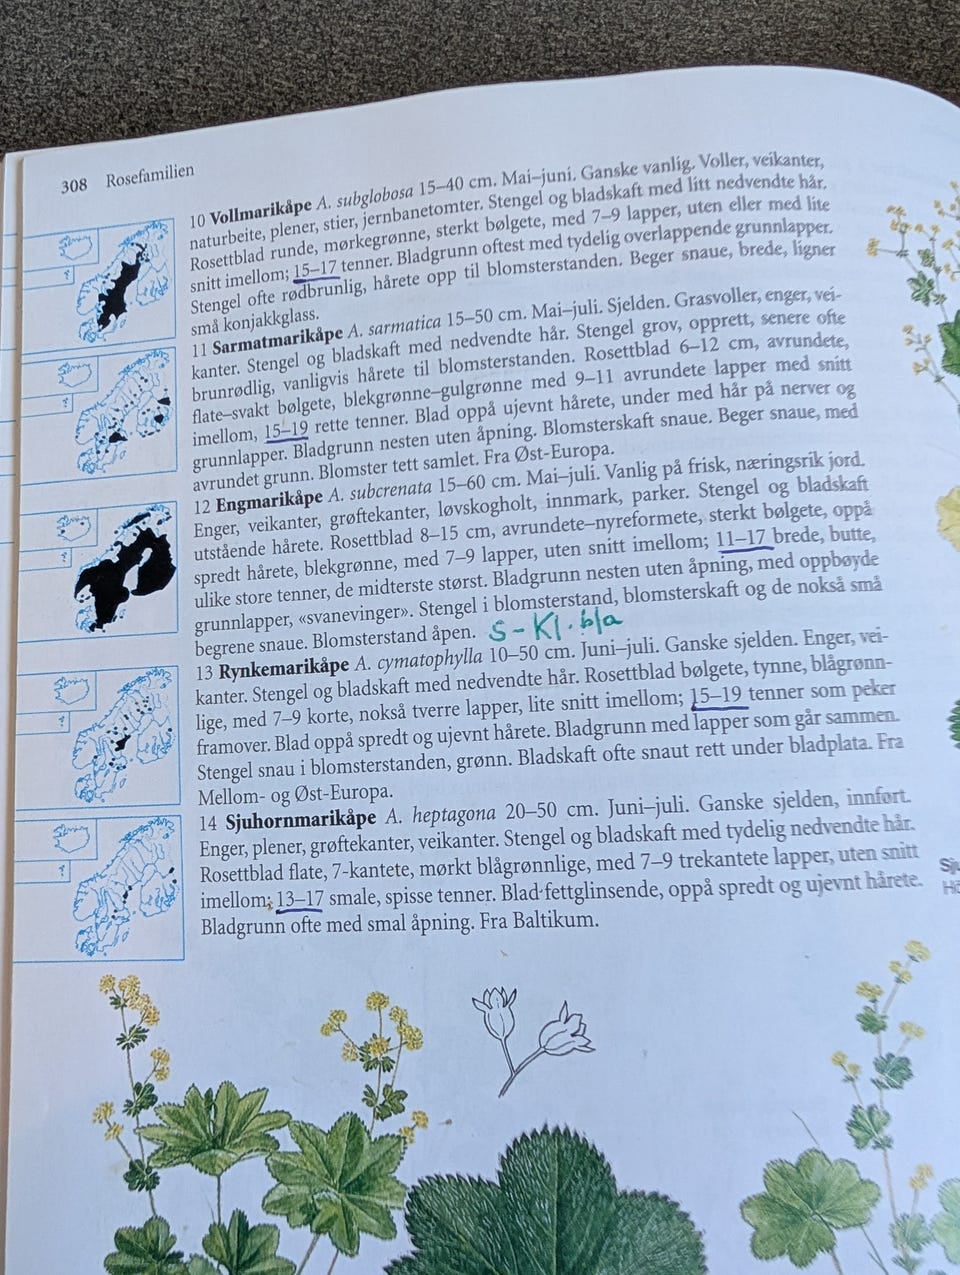 308 Rosefamilien
10 Vollmarikåpe A. subglobosa 15–40 cm. Mai–juni. Ganske vanlig. Voller, veikanter,
naturbeite, plener, stier, jernbanetomter. Stengel og bladskaft med litt nedvendte hår.
Rosettblad runde, mørkegrønne, sterkt bølgete, med 7–9 lapper, uten eller med lite
snitt imellom; 15–17 tenner. Bladgrunn oftest med tydelig overlappende grunnlapper.
Stengel ofte rødbrunlig, hårete opp til blomsterstanden. Beger snaue, brede, ligner
små konjakkglass.
11 Sarmatmarikåpe A. sarmatica 15–50 cm. Mai–juli. Sjelden. Grasvoller, enger, vei-
kanter. Stengel og bladskaft med nedvendte hår. Stengel grov, opprett, senere ofte
brunrødlig, vanligvis hårete til blomsterstanden. Rosettblad 6–12 cm, avrundete,
flate–svakt bølgete, blekgrønne–gulgrønne med 9–11 avrundete lapper med snitt
imellom, 15–19 rette tenner. Blad oppå ujevnt hårete, under med hår på nerver og
grunnlapper. Bladgrunn nesten uten åpning. Blomsterskaft snaue. Beger snaue, med
avrundet grunn. Blomster tett samlet. Fra Øst-Europa.
12 Engmarikåpe A. subcrenata 15–60 cm. Mai–juli. Vanlig på frisk, næringsrik jord.
Enger, veikanter, grøftekanter, løvskogholt, innmark, parker. Stengel og bladskaft
utstående hårete. Rosettblad 8–15 cm, avrundete–nyreformete, sterkt bølgete, oppå
spredt hårete, blekgrønne, med 7–9 lapper, uten snitt imellom; 11–17 brede, butte,
ulike store tenner, de midterste størst. Bladgrunn nesten uten åpning, med oppbøyde
grunnlapper, «svanevinger». Stengel i blomsterstand, blomsterskaft og de nokså små
begrene snaue. Blomsterstand åpen. S-Kl.bla
13 Rynkemarikåpe A. cymatophylla 10–50 cm. Juni–juli. Ganske sjelden. Enger, vei-
kanter. Stengel og bladskaft med nedvendte hår. Rosettblad bølgete, tynne, blågrønn-
lige, med 7–9 korte, nokså tverre lapper, lite snitt imellom; 15–19 tenner som peker
framover. Blad oppå spredt og ujevnt hårete. Bladgrunn med lapper som går sammen.
Stengel snau i blomsterstanden, grønn. Bladskaft ofte snaut rett under bladplata. Fra
Mellom- og Øst-Europa.
14 Sjuhornmarikåpe A. heptagona 20–50 cm. Juni–juli. Ganske sjelden, innført.
Enger, plener, grøftekanter, veikanter. Stengel og bladskaft med tydelig nedvendte hår.
Rosettblad flate, 7-kantete, mørkt blågrønnlige, med 7–9 trekantete lapper, uten snitt
imellom; 13–17 smale, spisse tenner. Blad fettglinsende, oppå spredt og ujevnt hårete.
Bladgrunn ofte med smal åpning. Fra Baltikum.